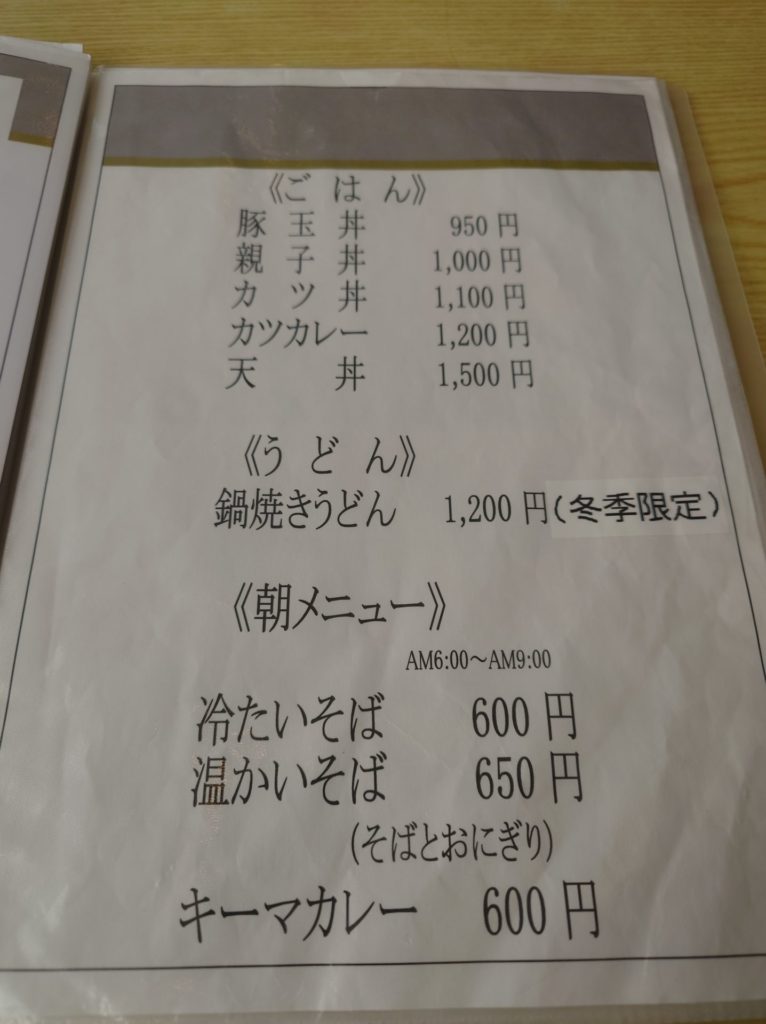 《ごはん》
豚玉丼 950円
親子丼 1,000円
カツ丼 1,100円
カツカレー 1,200円
天丼 1,500円
《うどん》
鍋焼きうどん 1,200円(冬季限定)
《朝メニュー》
AM6:00～AM9:00
冷たいそば 600円
温かいそば 650円
(そばとおにぎり)
キーマカレー 600円